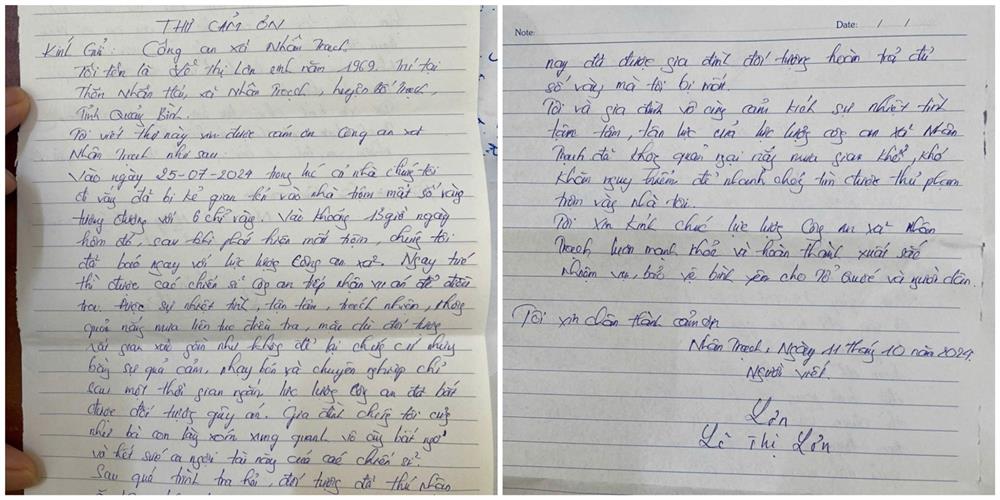 THƯ CẢM ƠN
Kính Gửi: Công an xã Nhân Trạch
Tôi tên là Lê Thị Lơn sinh năm 1969. Trú tại
Thôn Nhân Hải, xã Nhân Trạch, huyện Bố Trạch,
Tỉnh Quảng Bình.
Tôi viết thư này xin được cảm ơn Công an xã
Nhân Trạch như sau
Vào ngày 25-07-2024 trong lúc cả nhà chúng tôi
đi vắng đã bị kẻ gian lén vào nhà trộm mất số vàng
tương đương với 6 chỉ vàng. Vào khoảng 13 giờ ngày
hôm đó, sau khi phát hiện mất trộm, chúng tôi
đã báo ngay với lực lượng Công an xã. Ngay tức
thì được các chiến sĩ Công an tiếp nhận vụ án để điều
tra. Được sự nhiệt tình, tận tâm, trách nhiệm, không
quản nắng mưa liên tục điều tra, mặc dù đối tượng
rất gian xảo gần như không để lại chứng cứ nhưng
bằng sự quả cảm, nhạy bén và chuyên nghiệp chỉ
sau một thời gian ngắn lực lượng Công an đã bắt
được đối tượng gây án. Gia đình chúng tôi cũng
như bà con làng xóm xung quanh vô cùng bất ngờ
và hết sức ca ngợi tài năng của các chiến sĩ.
Sau quá trình tra hỏi, đối tượng đã thú nhận
Note:
Date: / /
nay đã được gia đình đối tượng hoàn trả đủ
số vàng mà tôi bị mất.
Tôi và gia đình vô cùng cảm kích sự nhiệt tình
tâm, tận lực của lực lượng công an xã Nhân
Trạch đã không quản ngại nắng mưa gian khổ, khó
khăn nguy hiểm để nhanh chóng tìm được thủ phạm
trộm vàng nhà tôi.
Tôi xin kính chúc lực lượng Công an xã Nhân
Trạch luôn mạnh khỏe và hoàn thành xuất sắc
nhiệm vụ, bảo vệ bình yên cho Tổ Quốc và người dân.
Tôi xin chân thành cảm ơn
Nhân Trạch, Ngày 11 tháng 10 năm 2024
Người viết
Lơn
Lê Thị Lơn